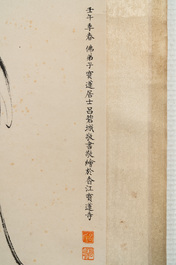 壬午季春佛弟子寶蓮居士呂碧城敬書敬繪於香江寶蓮寺